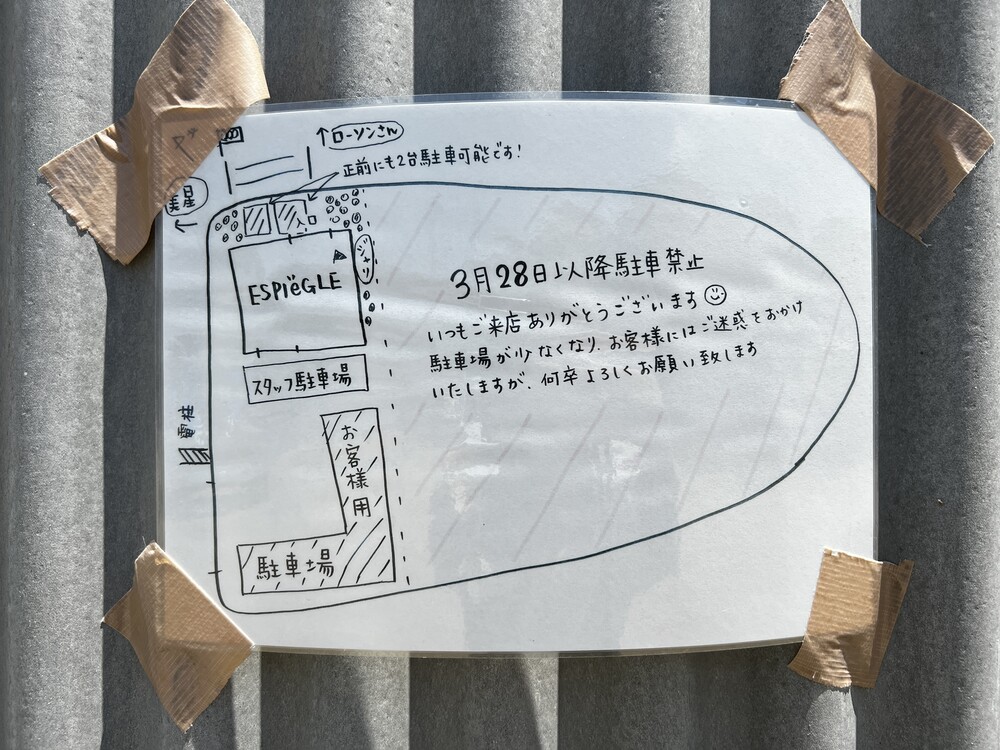 ↑ローソンさん
正前にも2台駐車可能です!
美星
←
ジャリ
ESPiëGLE
スタッフ駐車場
電柱
お客様用
駐車場
3月28日以降駐車禁止
いつもご来店ありがとうございます
駐車場が少なくなり、お客様にはご迷惑をおかけ
いたしますが、何卒よろしくお願い致します